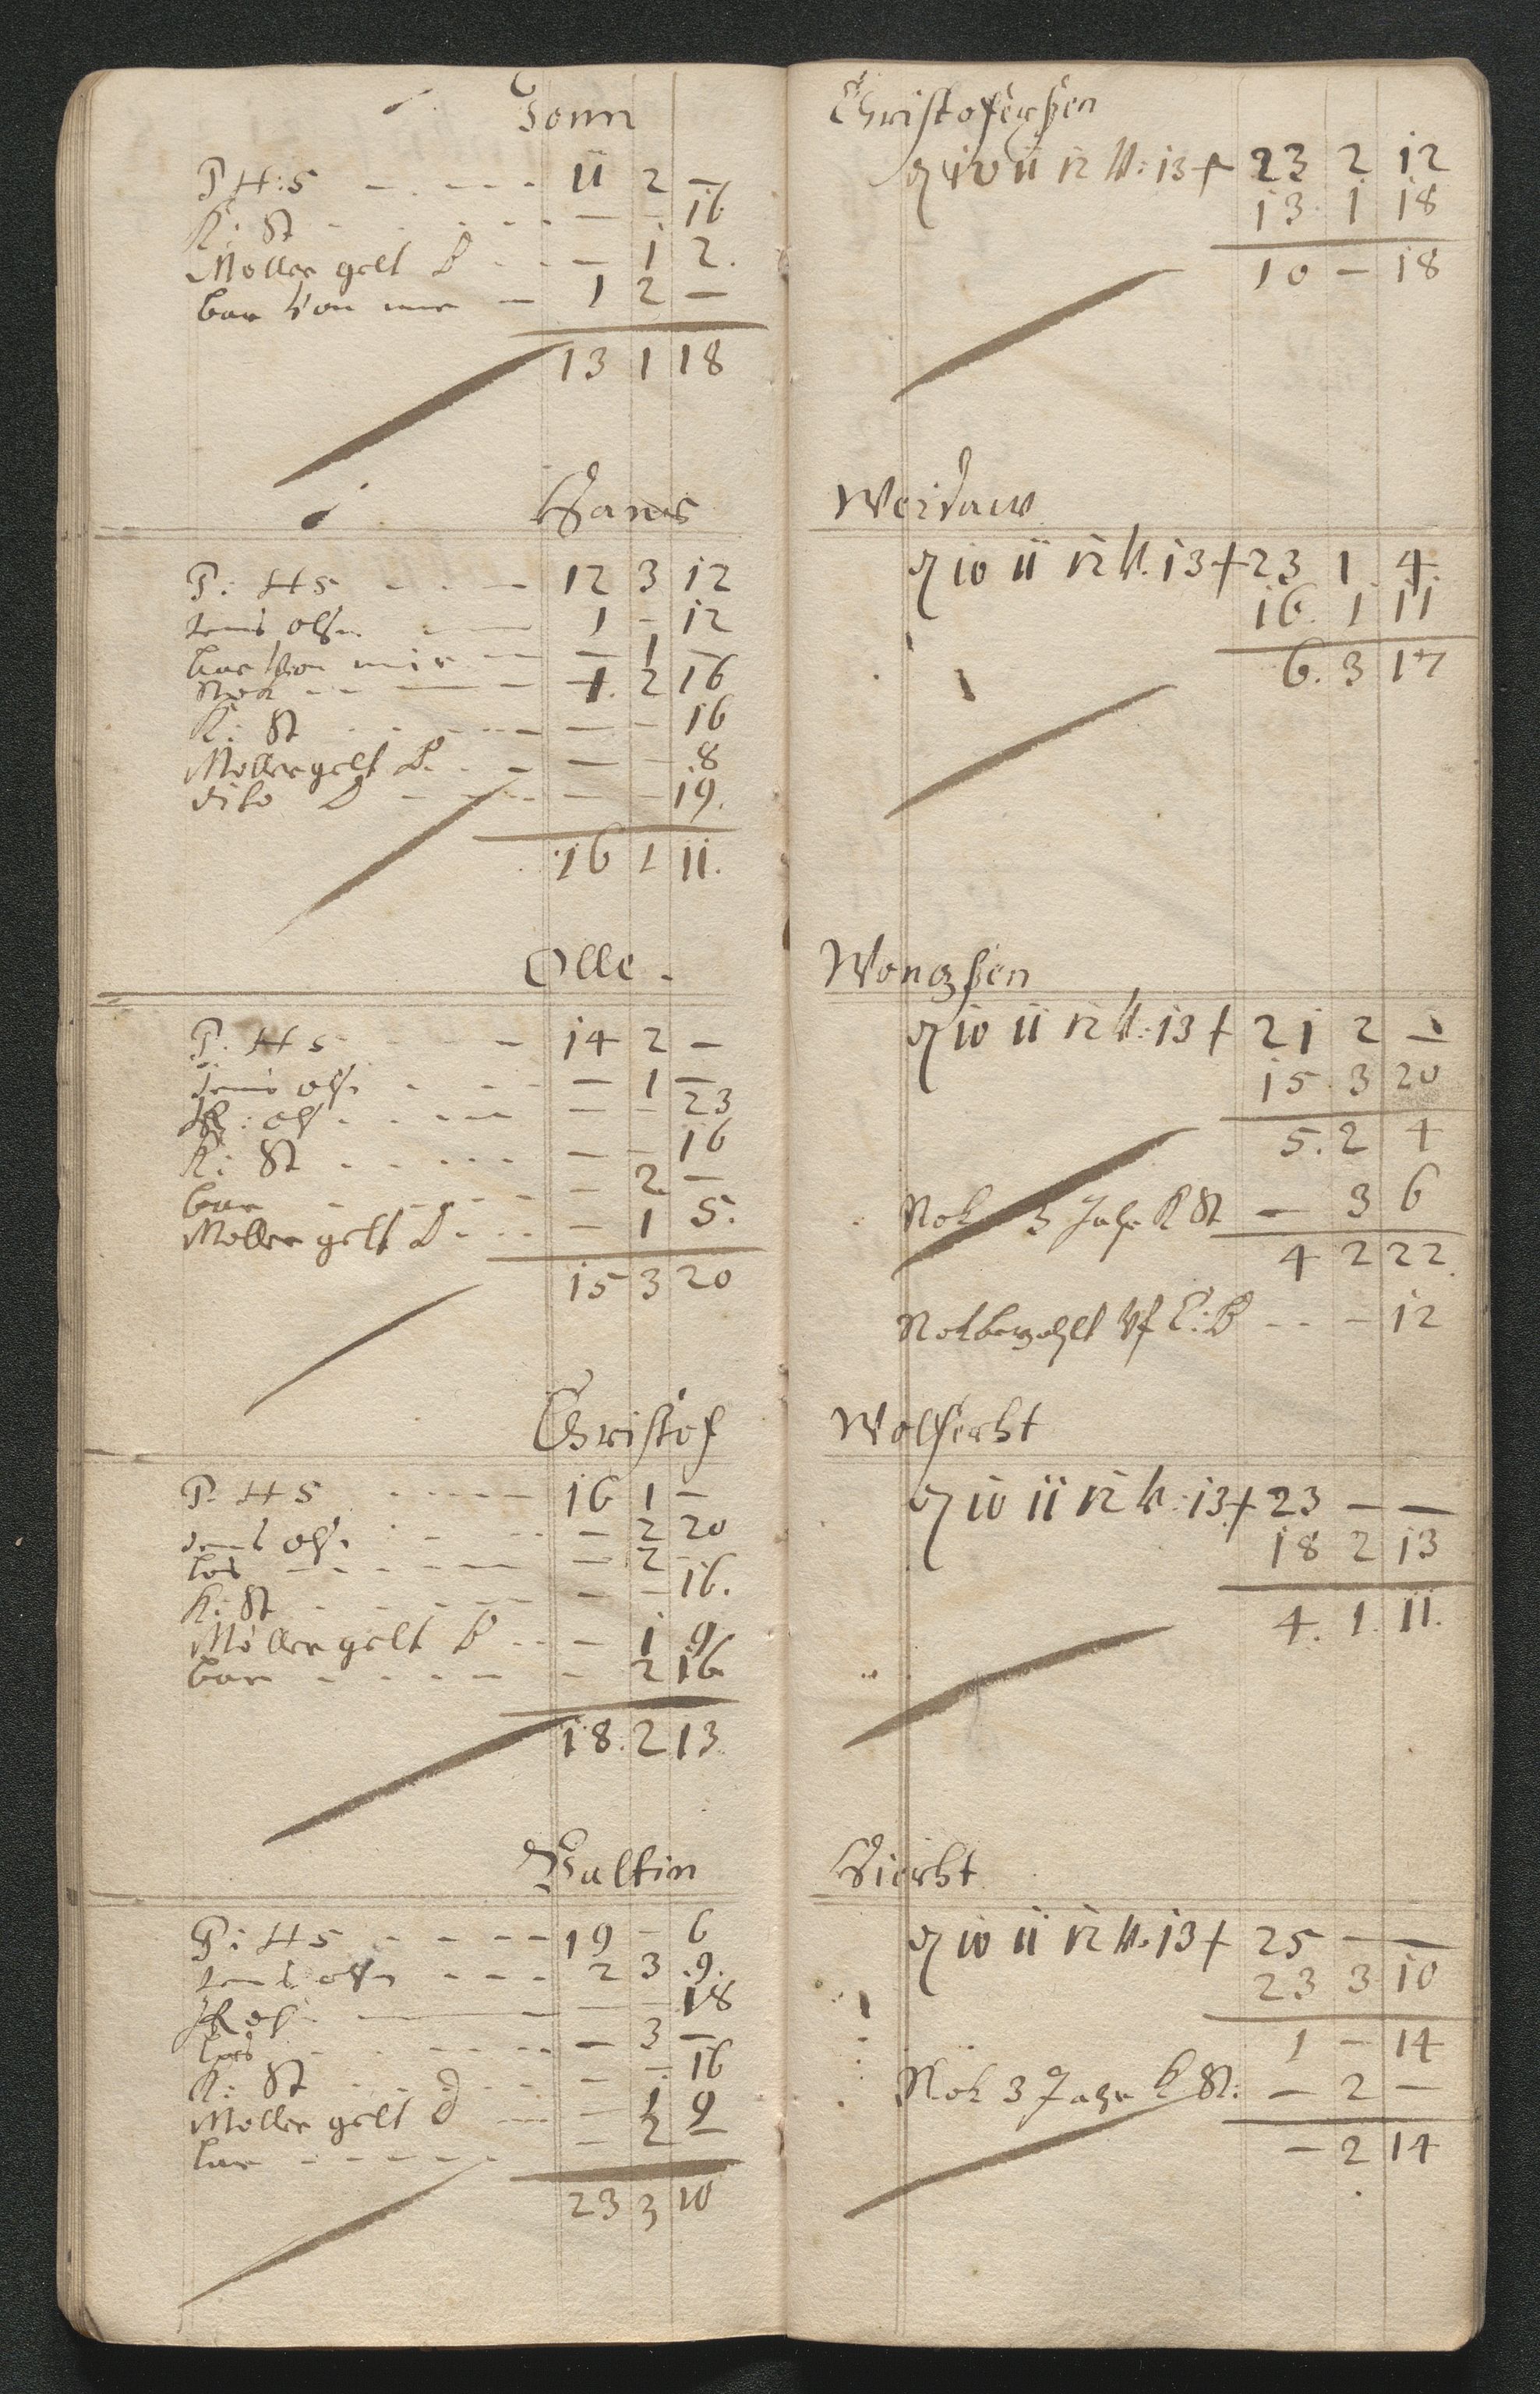 Jonn Christofersen
P H: S - - - - - 11 2 —
K: St - - - - - — - 16
Moller gelt B - - - 1 2.
bar Von mir — 1 2 —
13 1 18
10 11 12 13 23 2 12
13 1 18
10 — 18
Hans Weidauw
P: H S - - - - 12 3 12
Jens Olsn — 1 - 12
bar Von mir — — 1 —
1. 2 16
K: St - - - - — - 16
Moller gelt B. - - — - 8
dito B - - - — - 19.
16 1 11.
10 11 12 13 23 1 4.
16. 1 11
6. 3 17
Olle. Wongsen
P. H S - - - - 14 2 —
Jens Ols - - - — 1 —
Ols - - - — - 23
K: St - - - - — - 16
bar - - - - — 2 —
Moller gelt B - - - — 1 5.
15 3 20
10 11 12 13 21 2 —
15 3 20
5. 2 4
Nok 3 Jahr K St — 3 6
4 2 22.
Nok bezahlt Vf C: B - - - 12
Christof Wolfercht
P. H S - - - - 16 1 —
Jens Ols - - - — 2 20
— 2 —
K: St - - - - — - 16.
Moller gelt B - - — 1 9
bar - - - - - 2 16
18. 2 13.
10 11 12 13 23 — —
18 2 13
4. 1. 11.
Valtin Hircht
P: H S - - - - 19 - 6
Jens Olsn - - - 2 3 9.
Ols — — - 18
— 3 —
K: St - - - - — - 16
Moller gelt B — — 1 9
bar - - - - - — 2 —
23 3 10
10 11 12 13 25 — —
23 3 10
1 — 14
Nok 3 Jahr K St: — 2 —
— 2 14